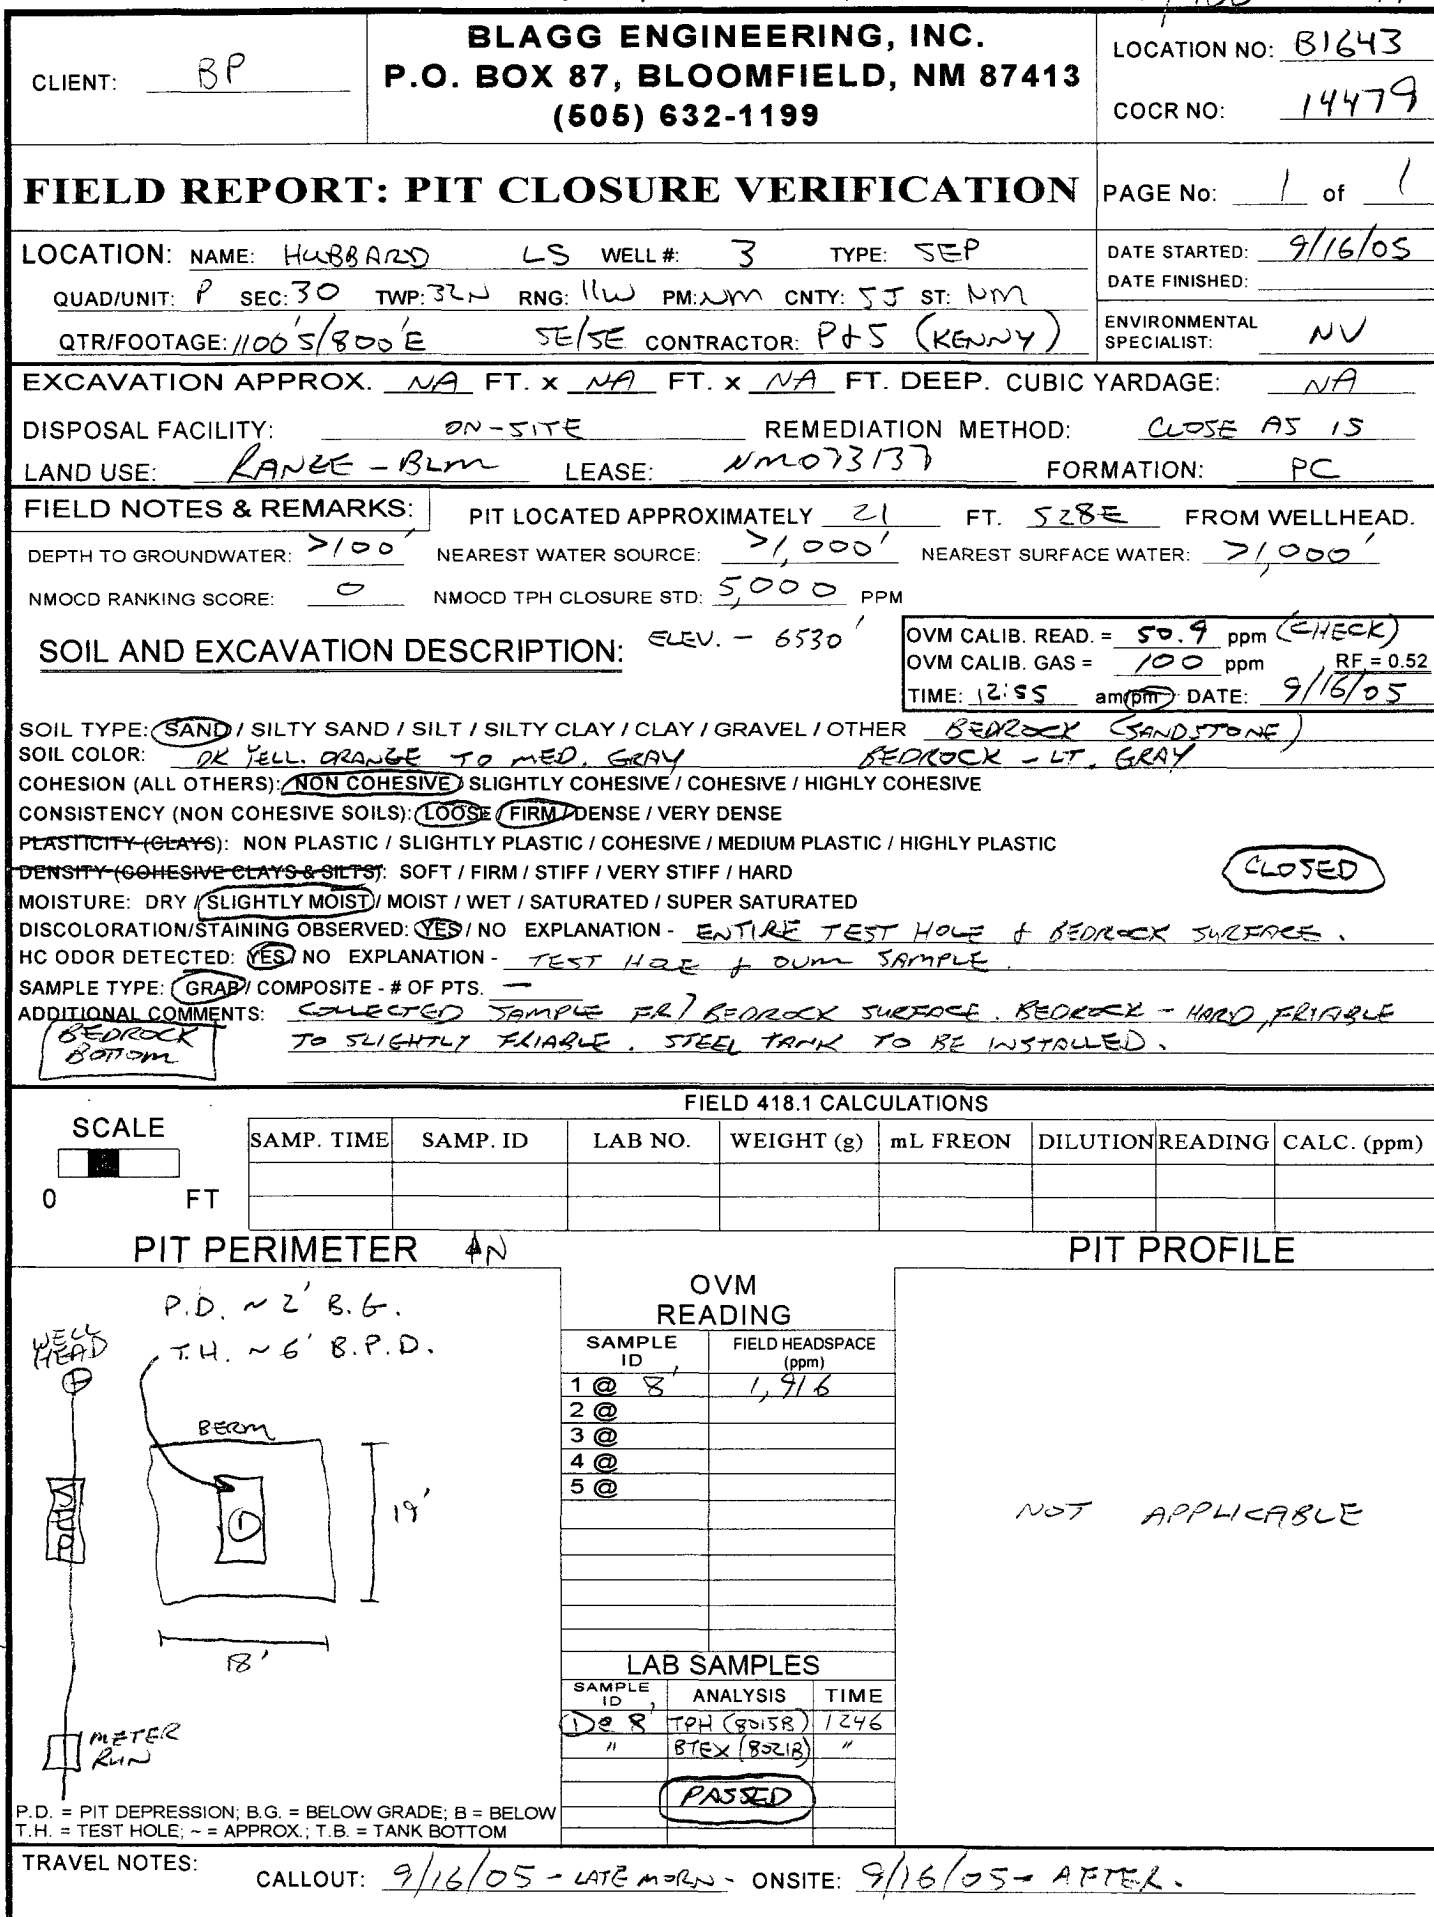 BLAGG ENGINEERING, INC.
P.O. BOX 87, BLOOMFIELD, NM 87413
(505) 632-1199
CLIENT: BP
LOCATION NO: B1643
COCR NO: 14479
FIELD REPORT: PIT CLOSURE VERIFICATION
PAGE No: 1 of 1
LOCATION: NAME: HUBBARD LS WELL #: 3 TYPE: SEP
QUAD/UNIT: P SEC: 30 TWP: 32N RNG: 11W PM: NM CNTY: SJ ST: NM
QTR/FOOTAGE: 1100'S/800'E SE/SE CONTRACTOR: P&S (KENNY)
DATE STARTED: 9/16/05
DATE FINISHED:
ENVIRONMENTAL
SPECIALIST: NV
EXCAVATION APPROX. NA FT. x NA FT. x NA FT. DEEP. CUBIC YARDAGE: NA
DISPOSAL FACILITY: ON-SITE REMEDIATION METHOD: CLOSE AS IS
LAND USE: RANGE - BLM LEASE: NM073137 FORMATION: PC
FIELD NOTES & REMARKS: PIT LOCATED APPROXIMATELY 21 FT. S28E FROM WELLHEAD.
DEPTH TO GROUNDWATER: >100' NEAREST WATER SOURCE: >1,000' NEAREST SURFACE WATER: >1,000'
NMOCD RANKING SCORE: 0 NMOCD TPH CLOSURE STD: 5,000 PPM
SOIL AND EXCAVATION DESCRIPTION: ELEV. - 6530'
OVM CALIB. READ. = 50.9 ppm (CHECK)
OVM CALIB. GAS = 100 ppm RF = 0.52
TIME: 12:55 am/pm DATE: 9/16/05
SOIL TYPE: SAND / SILTY SAND / SILT / SILTY CLAY / CLAY / GRAVEL / OTHER BEDROCK (SANDSTONE)
SOIL COLOR: DK YELL. ORANGE TO MED. GRAY BEDROCK - LT. GRAY
COHESION (ALL OTHERS): NON COHESIVE / SLIGHTLY COHESIVE / COHESIVE / HIGHLY COHESIVE
CONSISTENCY (NON COHESIVE SOILS): LOOSE / FIRM / DENSE / VERY DENSE
PLASTICITY (CLAYS): NON PLASTIC / SLIGHTLY PLASTIC / COHESIVE / MEDIUM PLASTIC / HIGHLY PLASTIC
DENSITY (COHESIVE CLAYS & SILTS): SOFT / FIRM / STIFF / VERY STIFF / HARD
CLOSED
MOISTURE: DRY / SLIGHTLY MOIST / MOIST / WET / SATURATED / SUPER SATURATED
DISCOLORATION/STAINING OBSERVED: YES / NO EXPLANATION - ENTIRE TEST HOLE & BEDROCK SURFACE.
HC ODOR DETECTED: YES / NO EXPLANATION - TEST HOLE & OVM SAMPLE.
SAMPLE TYPE: GRAB / COMPOSITE - # OF PTS. —
ADDITIONAL COMMENTS: COLLECTED SAMPLE FR/ BEDROCK SURFACE. BEDROCK - HARD, FRIABLE
TO SLIGHTLY FRIABLE. STEEL TANK TO BE INSTALLED.
BEDROCK
BOTTOM
FIELD 418.1 CALCULATIONS
SCALE
0 FT
SAMP. TIME SAMP. ID LAB NO. WEIGHT (g) mL FREON DILUTION READING CALC. (ppm)
PIT PERIMETER N
PIT PROFILE
P.D. ~ 2' B.G.
T.H. ~ 6' B.P.D.
WELL
HEAD
BERM
1
19'
18'
METER
RUN
OVM
READING
SAMPLE ID FIELD HEADSPACE (ppm)
1 @ 8' 1,916
2 @
3 @
4 @
5 @
NOT APPLICABLE
LAB SAMPLES
SAMPLE ID ANALYSIS TIME
1 @ 8' TPH (8015B) 1246
" BTEX (8021B) "
PASSED
P.D. = PIT DEPRESSION; B.G. = BELOW GRADE; B = BELOW
T.H. = TEST HOLE; ~ = APPROX.; T.B. = TANK BOTTOM
TRAVEL NOTES: CALLOUT: 9/16/05 - LATE MORN - ONSITE: 9/16/05 - AFTER.